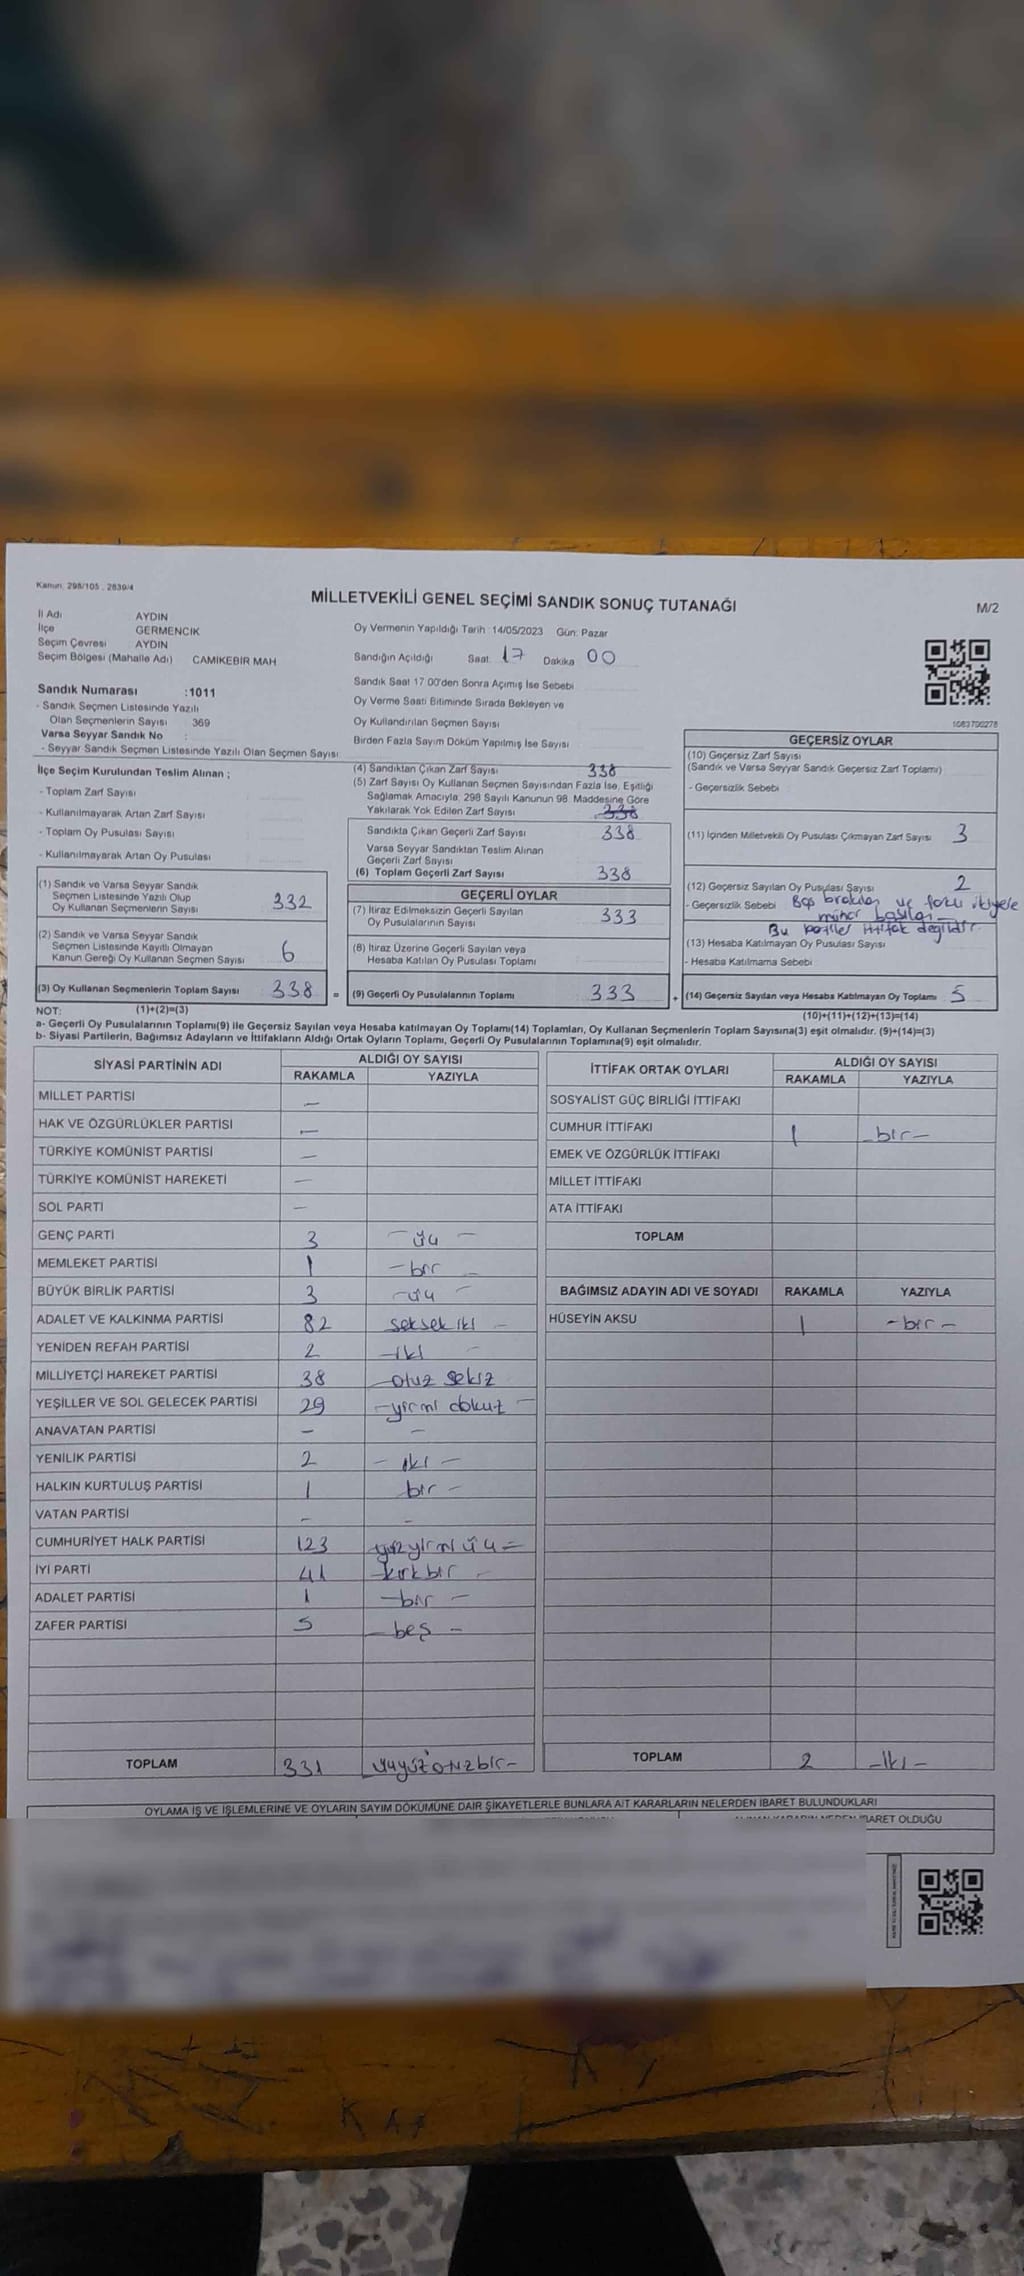 Kanun: 298/105 , 2839/4
MİLLETVEKİLİ GENEL SEÇİMİ SANDIK SONUÇ TUTANAĞI
M/2
İl Adı AYDIN
İlçe GERMENCİK
Seçim Çevresi AYDIN
Seçim Bölgesi (Mahalle Adı) CAMİKEBİR MAH
Sandık Numarası :1011
- Sandık Seçmen Listesinde Yazılı
Olan Seçmenlerin Sayısı 369
Varsa Seyyar Sandık No :
- Seyyar Sandık Seçmen Listesinde Yazılı Olan Seçmen Sayısı
Oy Vermenin Yapıldığı Tarih :14/05/2023 Gün: Pazar
Sandığın Açıldığı Saat 17 Dakika 00
Sandık Saat 17:00'den Sonra Açımış İse Sebebi
Oy Verme Saati Bitiminde Sırada Bekleyen ve
Oy Kullandırılan Seçmen Sayısı
Birden Fazla Sayım Döküm Yapılmış İse Sayısı
1083700278
İlçe Seçim Kurulundan Teslim Alınan ;
- Toplam Zarf Sayısı
- Kullanılmayarak Artan Zarf Sayısı
- Toplam Oy Pusulası Sayısı
- Kullanılmayarak Artan Oy Pusulası
(1) Sandık ve Varsa Seyyar Sandık
Seçmen Listesinde Yazılı Olup
Oy Kullanan Seçmenlerin Sayısı 332
(2) Sandık ve Varsa Seyyar Sandık
Seçmen Listesinde Kayıtlı Olmayan
Kanun Gereği Oy Kullanan Seçmen Sayısı 6
(3) Oy Kullanan Seçmenlerin Toplam Sayısı 338 =
(1)+(2)=(3)
(4) Sandıktan Çıkan Zarf Sayısı 338
(5) Zarf Sayısı Oy Kullanan Seçmen Sayısından Fazla İse, Eşitliği
Sağlamak Amacıyla, 298 Sayılı Kanunun 98. Maddesine Göre
Yakılarak Yok Edilen Zarf Sayısı 338
Sandıkta Çıkan Geçerli Zarf Sayısı 338
Varsa Seyyar Sandıktan Teslim Alınan
Geçerli Zarf Sayısı
(6) Toplam Geçerli Zarf Sayısı 338
GEÇERLİ OYLAR
(7) İtiraz Edilmeksizin Geçerli Sayılan
Oy Pusulalarının Sayısı 333
(8) İtiraz Üzerine Geçerli Sayılan veya
Hesaba Katılan Oy Pusulası Toplamı
(9) Geçerli Oy Pusulalarının Toplamı 333 +
GEÇERSİZ OYLAR
(10) Geçersiz Zarf Sayısı
(Sandık ve Varsa Seyyar Sandık Geçersiz Zarf Toplamı)
- Geçersizlik Sebebi
(11) İçinden Milletvekili Oy Pusulası Çıkmayan Zarf Sayısı 3
(12) Geçersiz Sayılan Oy Pusulası Sayısı 2
- Geçersizlik Sebebi Boş bırakılan ve farklı ikiyere
mühür basılan
Bu partiler ittifak değildir.
(13) Hesaba Katılmayan Oy Pusulası Sayısı
- Hesaba Katılmama Sebebi
(14) Geçersiz Sayılan veya Hesaba Katılmayan Oy Toplamı 5
(10)+(11)+(12)+(13)=(14)
NOT:
a- Geçerli Oy Pusulalarının Toplamı(9) ile Geçersiz Sayılan veya Hesaba katılmayan Oy Toplamı(14) Toplamları, Oy Kullanan Seçmenlerin Toplam Sayısına(3) eşit olmalıdır. (9)+(14)=(3)
b- Siyasi Partilerin, Bağımsız Adayların ve İttifakların Aldığı Ortak Oyların Toplamı, Geçerli Oy Pusulalarının Toplamına(9) eşit olmalıdır.
SİYASİ PARTİNİN ADI ALDIĞI OY SAYISI
RAKAMLA YAZIYLA
MİLLET PARTİSİ –
HAK VE ÖZGÜRLÜKLER PARTİSİ –
TÜRKİYE KOMÜNİST PARTİSİ –
TÜRKİYE KOMÜNİST HAREKETİ –
SOL PARTİ –
GENÇ PARTİ 3 – üç –
MEMLEKET PARTİSİ 1 – bir –
BÜYÜK BİRLİK PARTİSİ 3 – üç –
ADALET VE KALKINMA PARTİSİ 82 seksek iki –
YENİDEN REFAH PARTİSİ 2 – iki –
MİLLİYETÇİ HAREKET PARTİSİ 38 – otuz sekiz
YEŞİLLER VE SOL GELECEK PARTİSİ 29 – yirmi dokuz –
ANAVATAN PARTİSİ – –
YENİLİK PARTİSİ 2 – iki –
HALKIN KURTULUŞ PARTİSİ 1 bir –
VATAN PARTİSİ – –
CUMHURİYET HALK PARTİSİ 123 yüzyirmi üç =
İYİ PARTİ 41 – kırkbir –
ADALET PARTİSİ 1 – bir –
ZAFER PARTİSİ 5 – beş –
TOPLAM 331 üçyüzotuzbir –
İTTİFAK ORTAK OYLARI ALDIĞI OY SAYISI
RAKAMLA YAZIYLA
SOSYALİST GÜÇ BİRLİĞİ İTTİFAKI
CUMHUR İTTİFAKI 1 – bir –
EMEK VE ÖZGÜRLÜK İTTİFAKI
MİLLET İTTİFAKI
ATA İTTİFAKI
TOPLAM
BAĞIMSIZ ADAYIN ADI VE SOYADI RAKAMLA YAZIYLA
HÜSEYİN AKSU 1 – bir –
TOPLAM 2 – iki –
OYLAMA İŞ VE İŞLEMLERİNE VE OYLARIN SAYIM DÖKÜMÜNE DAİR ŞİKAYETLERLE BUNLARA AİT KARARLARIN NELERDEN İBARET BULUNDUKLARI
ALINAN KARARIN NEDEN İBARET OLDUĞU
KAS